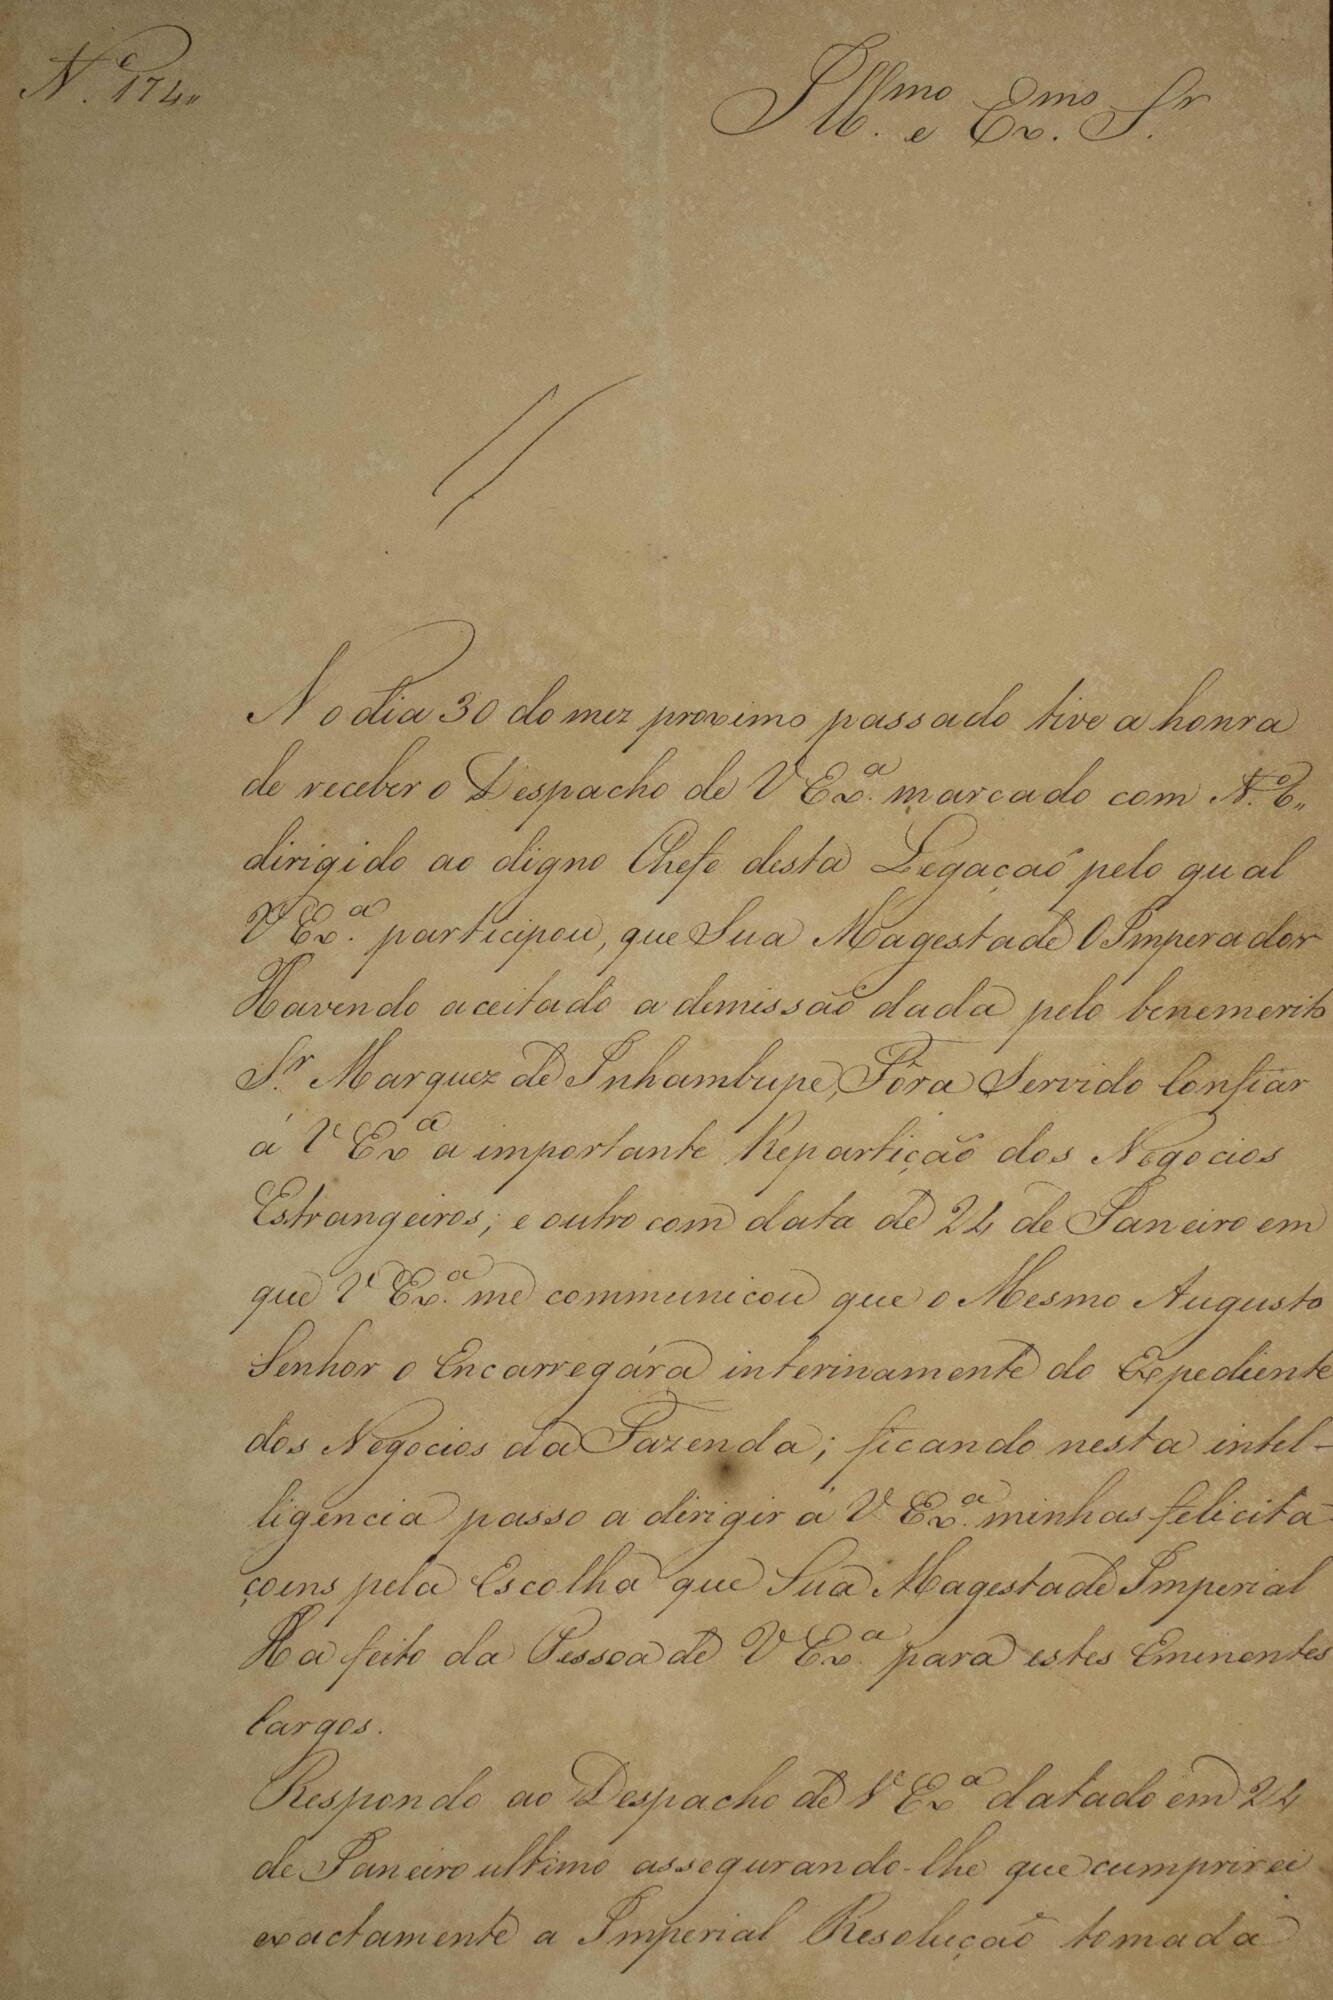 N.º 174"
Ill.mo e Ex.mo Sr.
No dia 30 do mez proximo passado tive a honra
de receber o Despacho de V Ex.ª marcado com N.º 6"
dirigido ao digno Chefe desta Legaçaõ pelo qual
V Ex.ª participou, que Sua Magestade O Imperador
Havendo aceitado a demissaõ dada pelo benemerito
Sr. Marquez de Inhambupe, Fôra Servido Confiar
á V Exª a importante Repartiçaõ dos Negocios
Estrangeiros; e outro com data de 24 de Janeiro em
que V Ex.ª me communicou que o Mesmo Augusto
Senhor o Encarregára interinamente do Expediente
dos Negocios da Fazenda; ficando nesta intel-
ligencia passo a dirigir á V Ex.ª minhas felicita-
çoens pela Escolha que Sua Magestade Imperial
Ha feito da Pessoa de V Ex.ª para estes Eminentes
Cargos.
Respondo ao Despacho de V Exª datado em 24
de Janeiro ultimo assegurando-lhe que cumprirei
exactamente a Imperial Resoluçaõ tomada